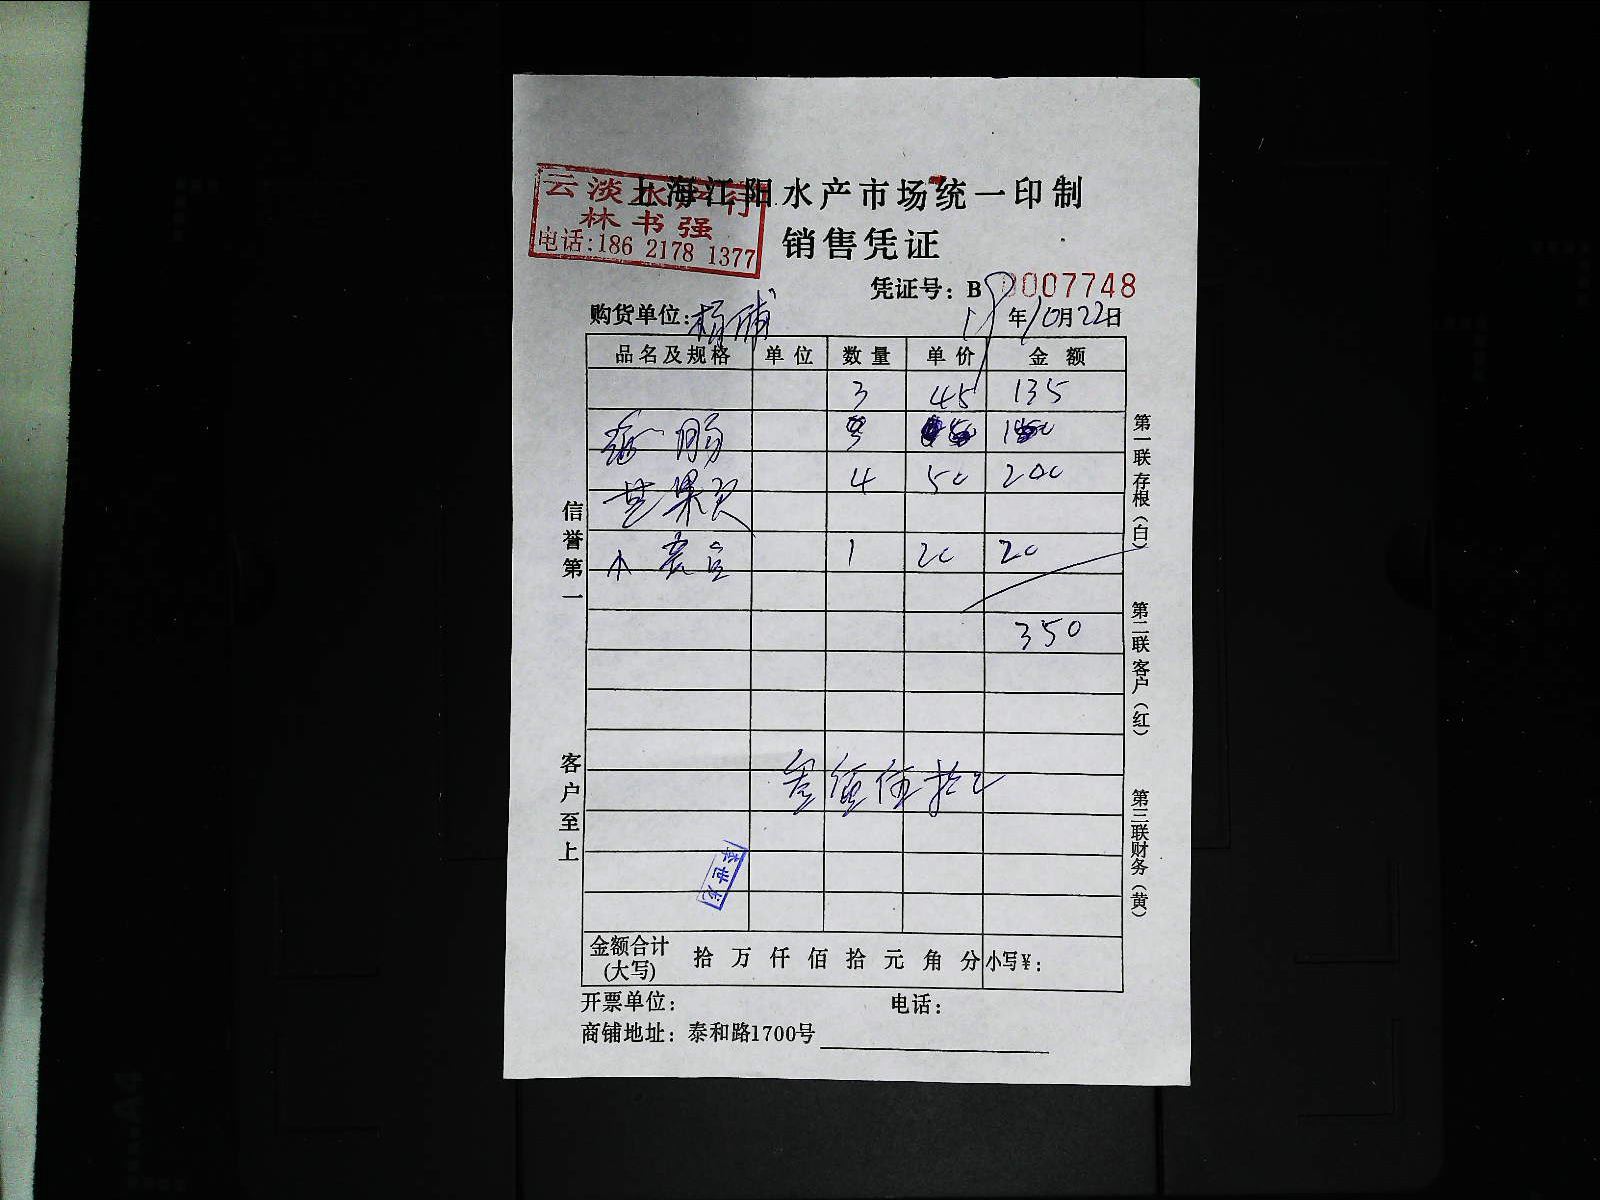 上海江阳水产市场统一印制
云淡水产行
林书强
电话:186 2178 1377
销售凭证
凭证号: B 0007748
购货单位: 杨浦
年10月22日
品名及规格 单位 数量 单价 金额
3 45 135
4 50 200
芒果贝
1 20 20
350
叁佰伍拾元
金额合计(大写) 拾 万 仟 佰 拾 元 角 分 小写¥:
开票单位: 电话:
商铺地址: 泰和路1700号
信誉第一
客户至上
第一联存根(白)
第二联客户(红)
第三联财务(黄)